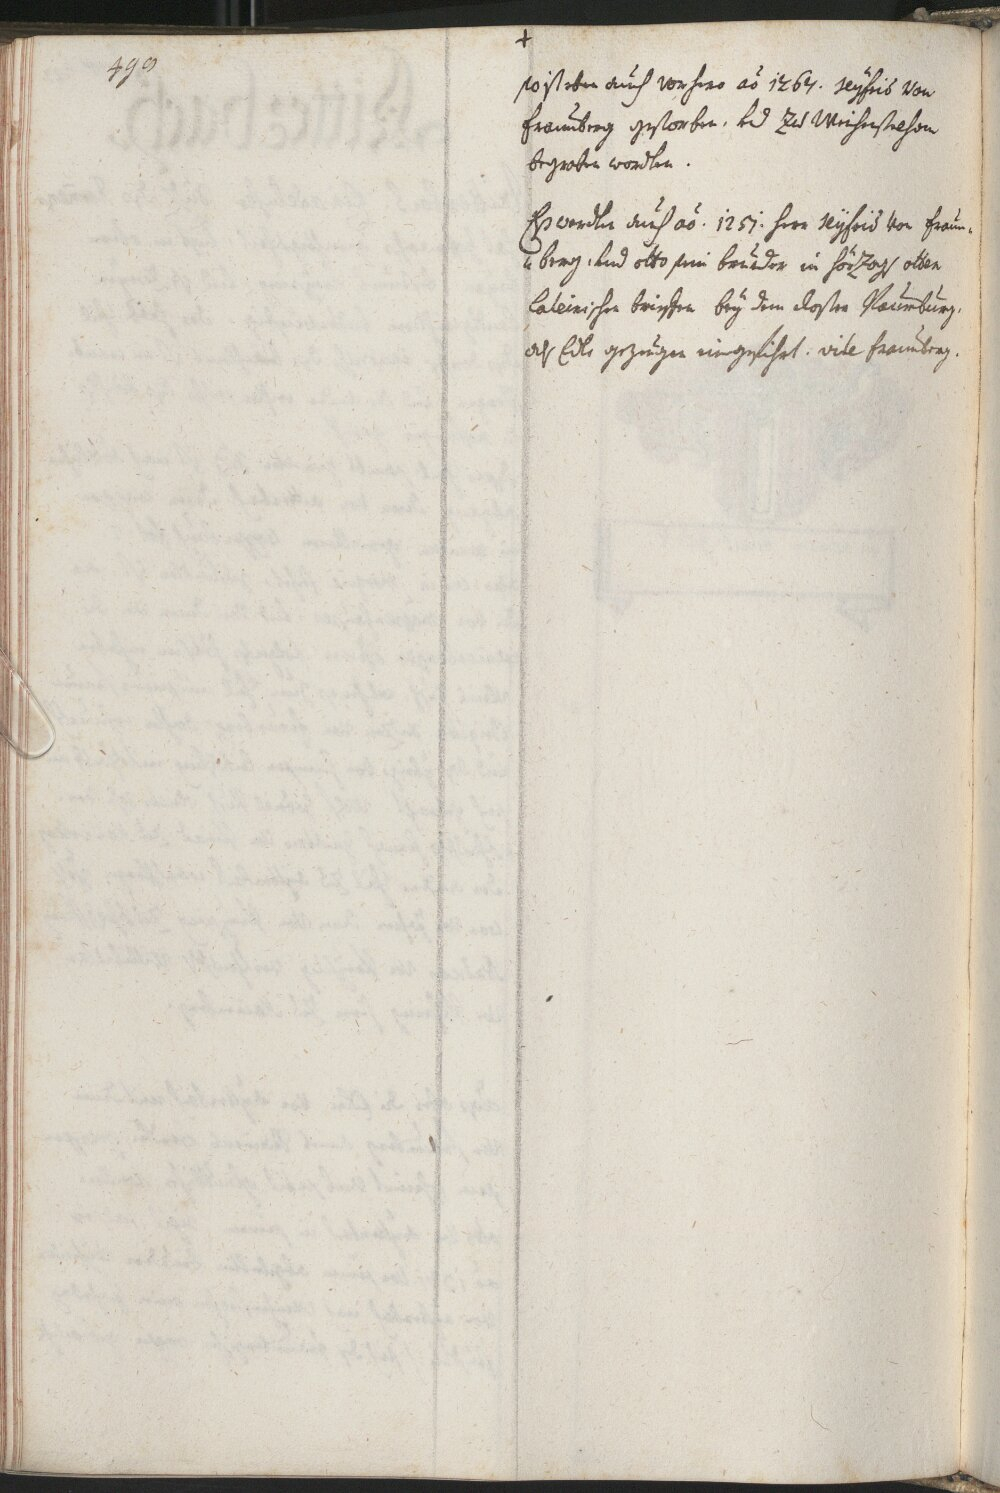 490
+
so ist eben auch vorhero ao 1264. Seyfrid von
fraunberg gestorben. und zu Weihenstephan
begraben worden.
Es werden auch ao. 1251. herr Seyfrid von fraun-
berg, und otto sein bruder in hörzogs otten
lateinischen brieffen bey dem closter Raumburg.
als Edle gezeugen eingeführt. vide fraunberg.